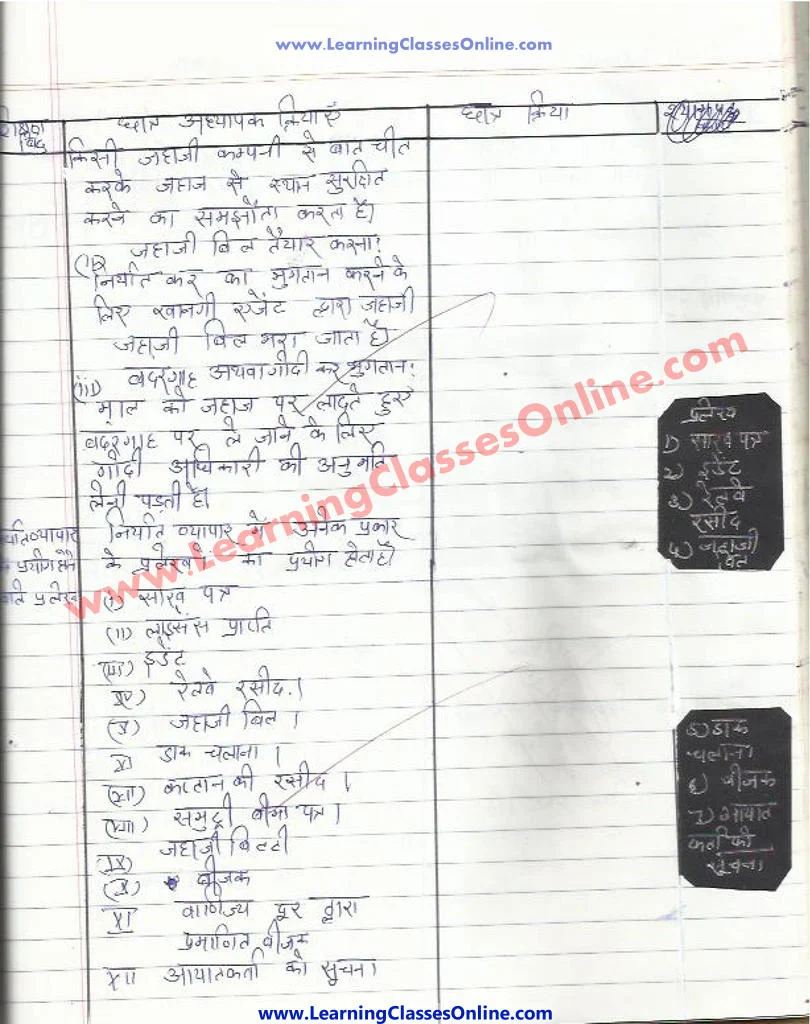 www.LearningClassesOnline.com
शिक्षण बिंदु
छात्र अध्यापक क्रियाएं
छात्र क्रिया
किसी जहाजी कम्पनी से बात चीत
करके जहाज से स्थान सुरक्षित
करने का समझौता करता है।
(ii) जहाजी बिल तैयार करना:
निर्यात कर का भुगतान करने के
लिए रवानगी एजेंट द्वारा जहाजी
जहाजी बिल भरा जाता है।
(iii) बदरगाह अथवा गोदी कर भुगतान:
माल को जहाज पर लादते हुए
बदरगाह पर ले जाने के लिए
गोदी अधिकारी की अनुमति
लेनी पडती है।
निर्यात व्यापार में अनेक प्रकार
के प्रलेखों का प्रयोग होता है।
(i) साख पत्र
(ii) लाइसेंस प्राप्ति
(iii) इंडेंट
(iv) रेलवे रसीद।
(v) जहाजी बिल।
VI डाक चलाना।
(vii) कप्तान की रसीद।
(viii) समुद्री बीमा पत्र।
IX जहाजी बिल्टी
(X) बीजक
XI वाणिज्य दूर द्वारा
प्रमाणित बीजक
XII आयातकर्ता को सूचना।
प्रलेख
1) साख पत्र
2) इंडेंट
3) रेलवे
रसीद
4) जहाजी
बिल
5) डाक
चलाना।
6) बीजक
7) आयात
कर्ता को
सूचना।
www.LearningClassesOnline.com
www.LearningClassesOnline.com